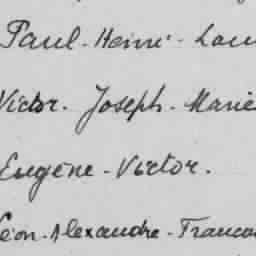 Paul-Henri-Lou
Victor-Joseph-Marie
Eugène-Victor.
Léon-Alexandre-Franco